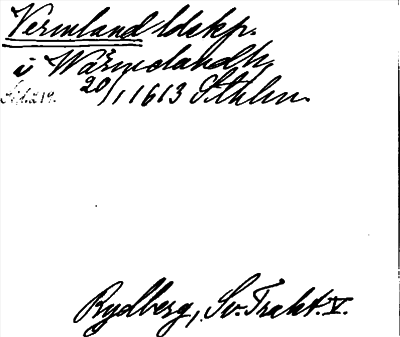 Vermland ldskp.
i Wärmelandh,
20/1 1613 Sthlm.
Rydberg, Sv. Trakt. V.